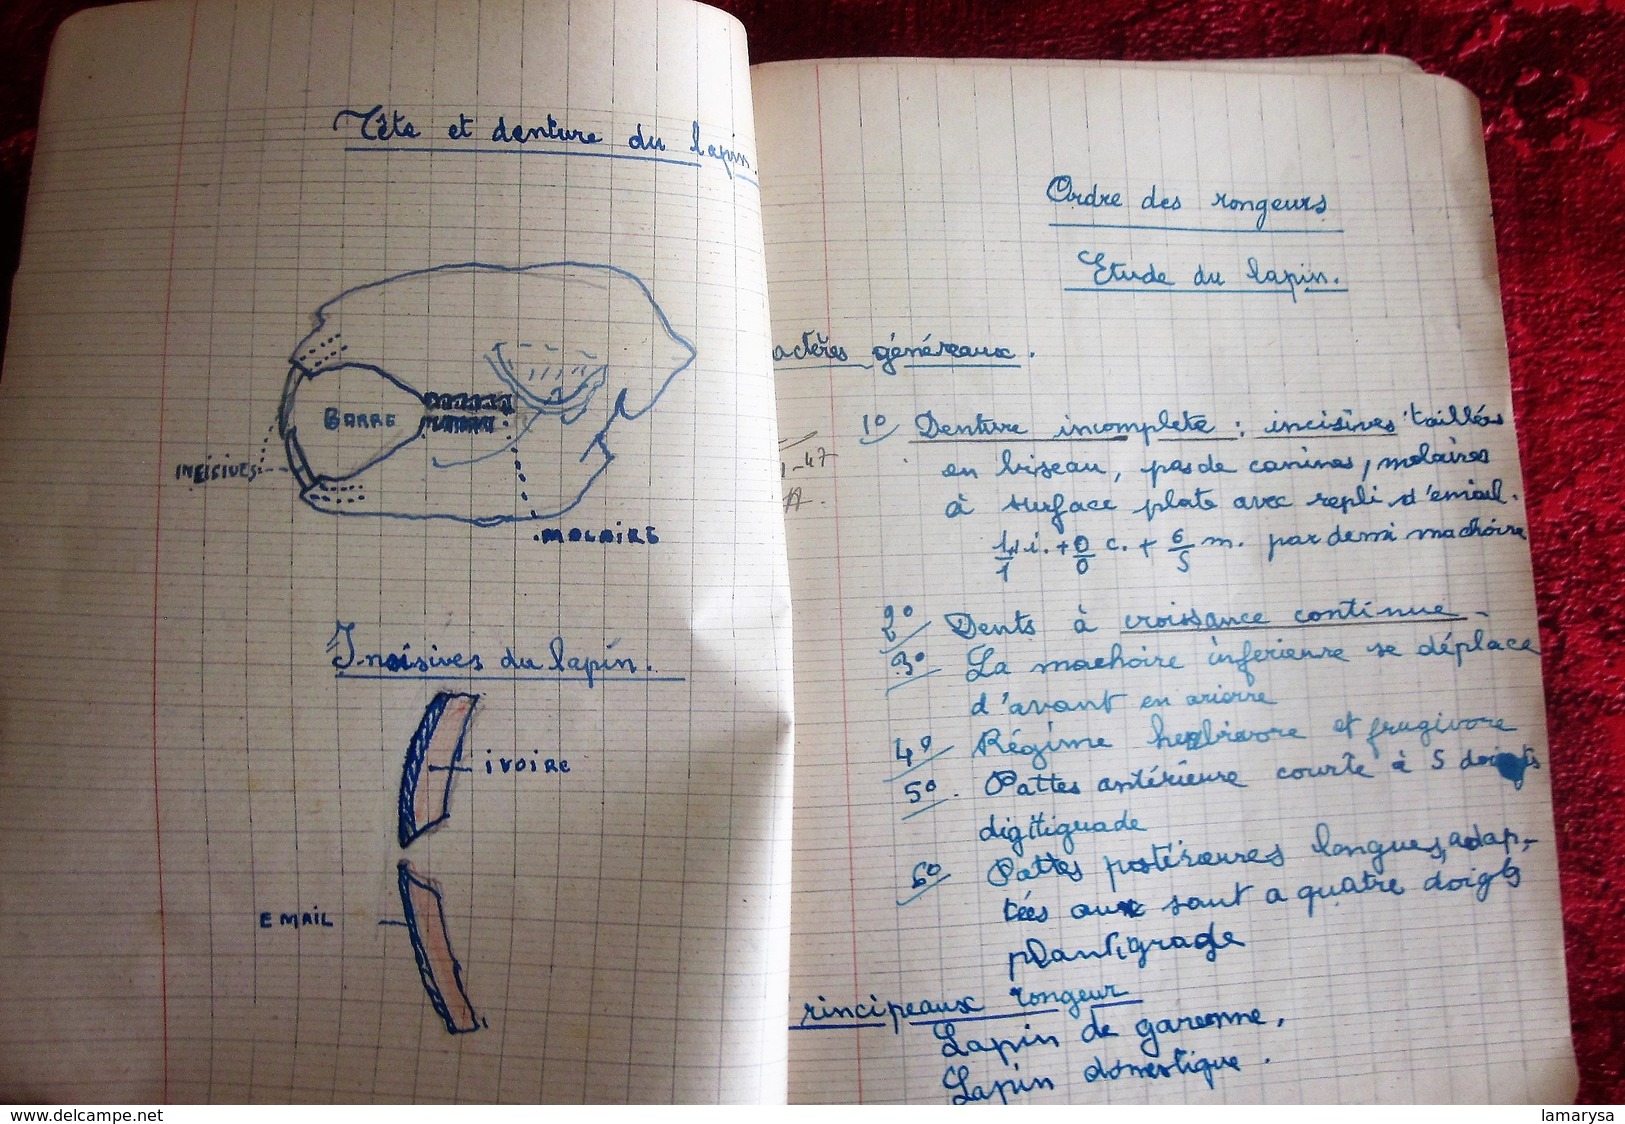 Tête et denture du lapin
BARRE
INCISIVES
MOLAIRE
Incisives du lapin.
IVOIRE
EMAIL
Ordre des rongeurs
Etude du lapin.
actères généreaux.
1º Denture incomplete : incisives taillées
en biseau, pas de canines, molaires
à surface plate avec repli d'émail.
1/1 i. + 0/0 c. + 6/5 m. par demi machoire
-47
A.
2º Dents à croissance continue -
3º La machoire inferieure se déplace
d'avant en arierre
4º Régime herbivore et frugivore
5º. Pattes antérieure courte à 5 doigts
digitiguade
6º Pattes postérieures longues, adap-
tées aux saut a quatre doigts
plantigrade
rincipeaux rongeur
Lapin de garenne,
Lapin domestique.
www.delcampe.net
lamarysa